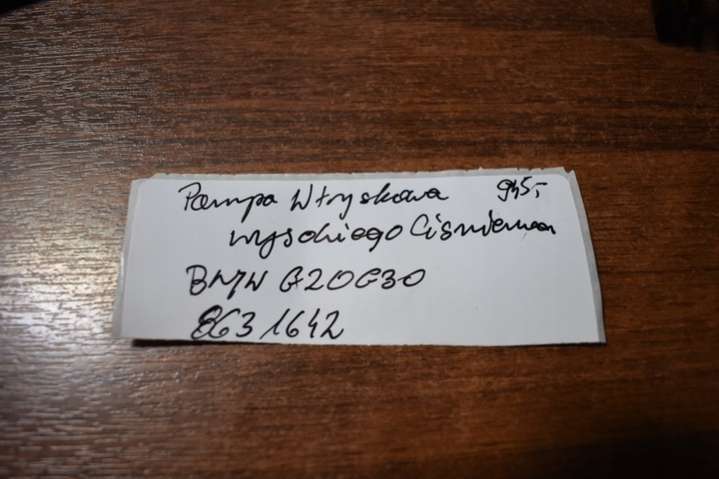 Pompa Wtryskowa 945,-
wysokiego Ciśnienia
BMW G20G30
8631642